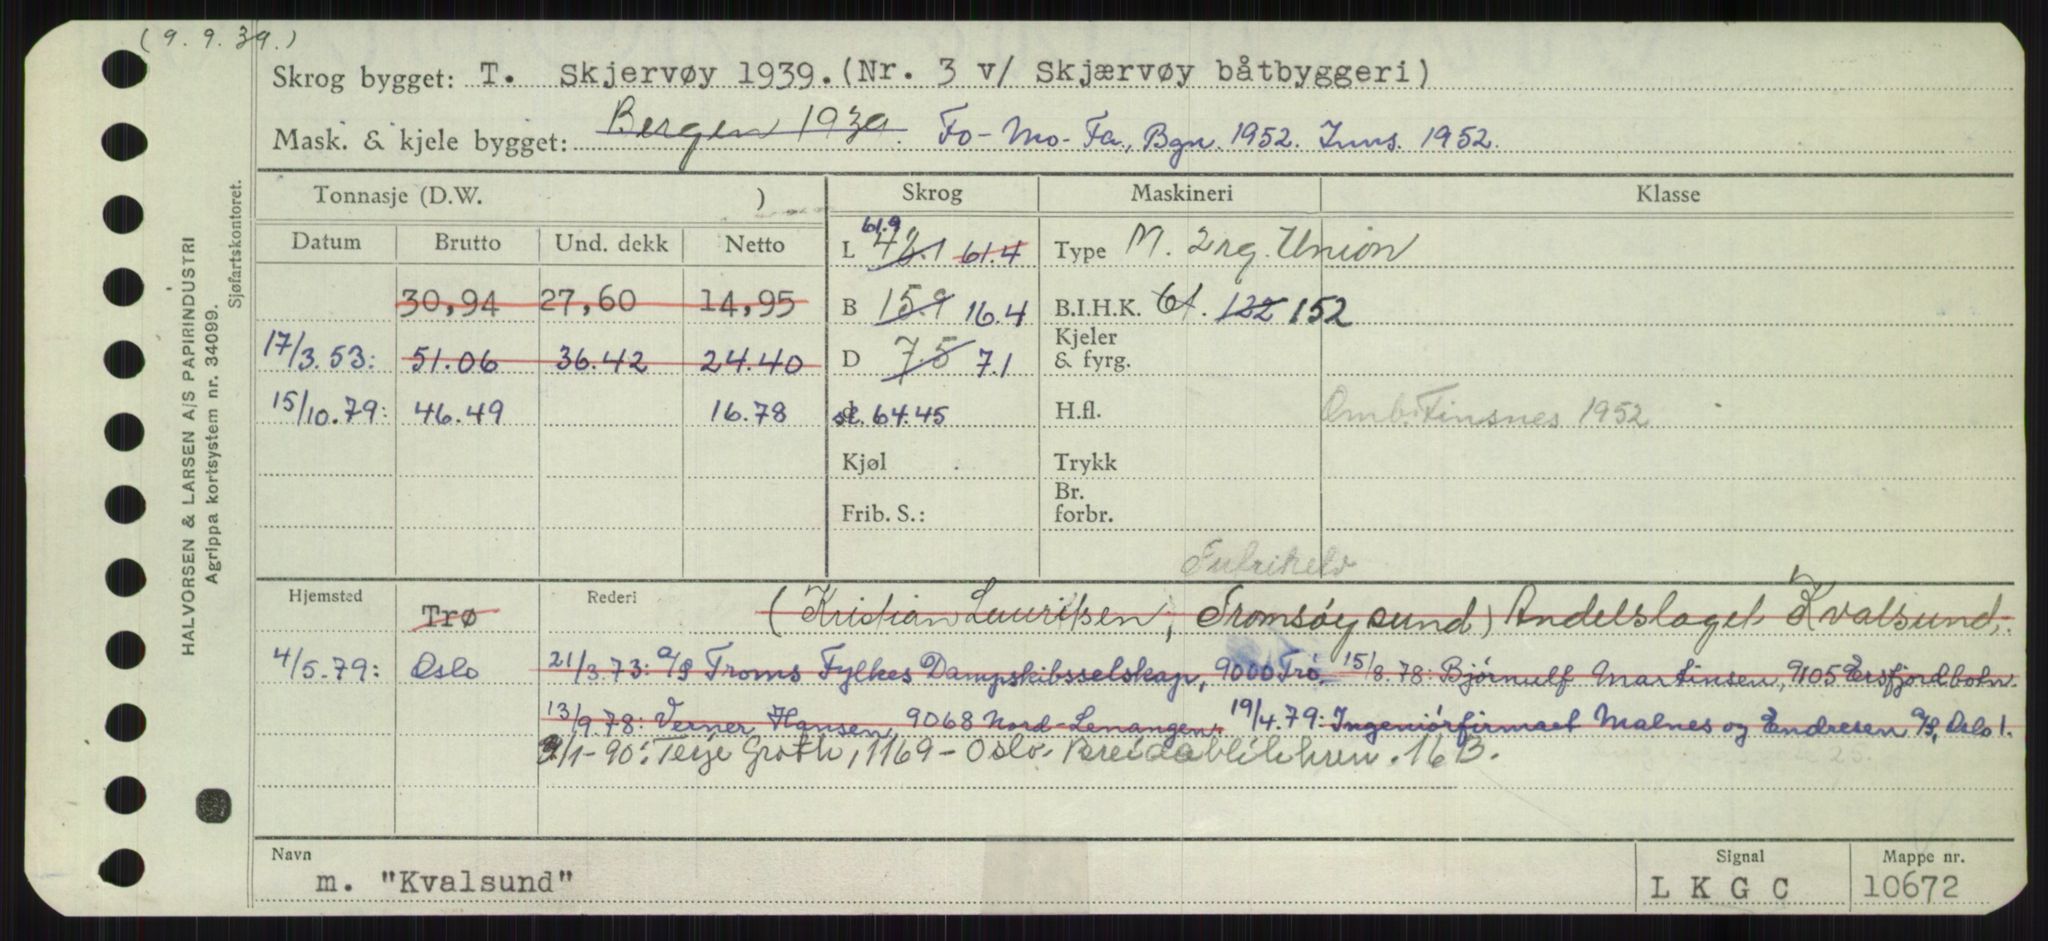 (9.9.39.)
Skrog bygget: T. Skjervøy 1939. (Nr. 3 v/ Skjærvøy båtbyggeri)
Mask. & kjele bygget: Bergen 1939. Fo-Mo-Fa, Bgn. 1952. Inns. 1952.
Tonnasje (D.W. ) Skrog Maskineri Klasse
Datum Brutto Und. dekk Netto
61.9
L 61.4 Type M. 2rg. Union
30,94 27,60 14,95
B 15.9 16.4 B.I.H.K. 122 152
17/3.53: 51.06 36.42 24.40
D 7.5 7.1 Kjeler & fyrg.
15/10.79: 46.49 16.78
st. 64.45 H.fl. Omb. Finsnes 1952
Kjøl Trykk
Frib. S.: Br. forbr.
Hjemsted Rederi
Trø (Kristian Lauritsen, Tromsøysund) Andelslaget Kvalsund.
4/5.79: Oslo 21/3.73: A/S Troms Fylkes Dampskibsselskap, 9000 Trø. 15/8.78: Bjørnulf Martinsen, 9105 Ersfjordbotn.
13/9.78: Verner Hansen 9068 Nord-Lenangen. 19/4.79: Ingeniørfirmaet Malnes og Endresen A/S, Oslo 1.
/1-90: Terje Groth, 1169-Oslo. 16 B.
Navn Signal Mappe nr.
m. "Kvalsund" L K G C 10672
HALVORSEN & LARSEN A/S PAPIRINDUSTRI
Agrippa kortsystem nr. 34099.
Sjøfartskontoret.